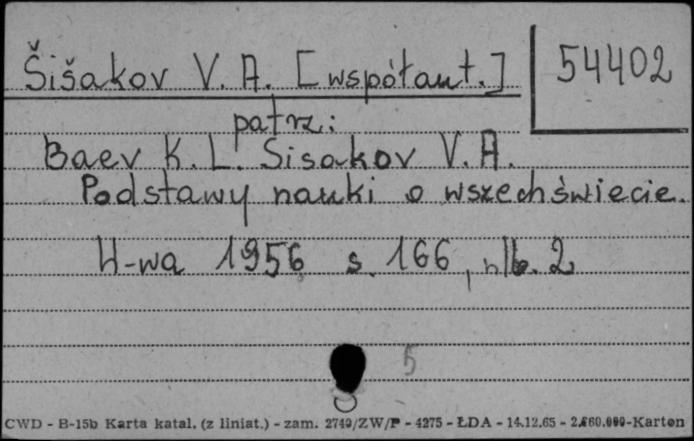 Šišakov V. A. [współaut.]
54402
patrz:
Baev K. L. Sisakov V. A.
Podstawy nauki o wszechświecie.
W-wa 1956 s. 166, nlb. 2
5
CWD - B-15b Karta katal. (z liniat.) - zam. 2740/ZW/P - 4275 - ŁDA - 14.12.65 - -Karten